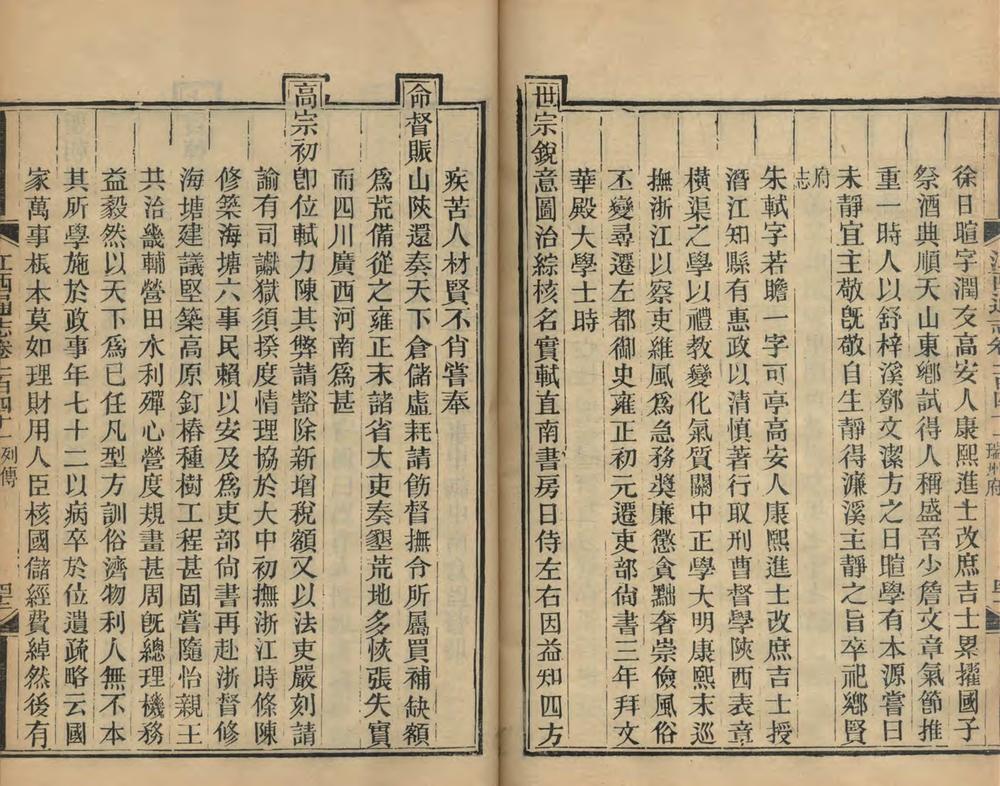 徐日暄字潤友高安人康熙進士改庶吉士累擢國子
祭酒典順天山東鄉試得人稱盛晉少詹文章氣節推
重一時人以舒梓溪鄧文潔方之日暄學有本源嘗曰
未靜宜主敬旣敬自生靜得濂溪主靜之旨卒祀鄉賢
府志
朱軾字若瞻一字可亭高安人康熙進士改庶吉士授
潛江知縣有惠政以清慎著行取刑曹督學陝西表章
橫渠之學以禮教變化氣質關中正學大明康熙末巡
撫浙江以察吏維風爲急務奬廉懲貪黜奢崇儉風俗
丕變尋遷左都御史雍正初元遷吏部尙書三年拜文
華殿大學士時
世宗銳意圖治綜核名實軾直南書房日侍左右因益知四方
疾苦人材賢不肖嘗奉
命督賑山陝還奏天下倉儲虛耗請飭督撫令所屬買補缺額
爲荒備從之雍正末諸省大吏奏墾荒地多恢張失實
而四川廣西河南爲甚
高宗初卽位軾力陳其弊請豁除新增稅額又以法吏嚴刻請
諭有司讞獄須揆度情理協於大中初撫浙江時條陳
修築海塘六事民賴以安及爲吏部尙書再赴浙督修
海塘建議堅築高原釘樁種樹工程甚固嘗隨怡親王
共治畿輔營田水利殫心營度規畫甚周旣總理機務
益毅然以天下爲已任凡型方訓俗濟物利人無不本
其所學施於政事年七十二以病卒於位遺疏略云國
家萬事根本莫如理財用人臣核國儲經費綽然後有
江西通志卷一百四十一 列傳